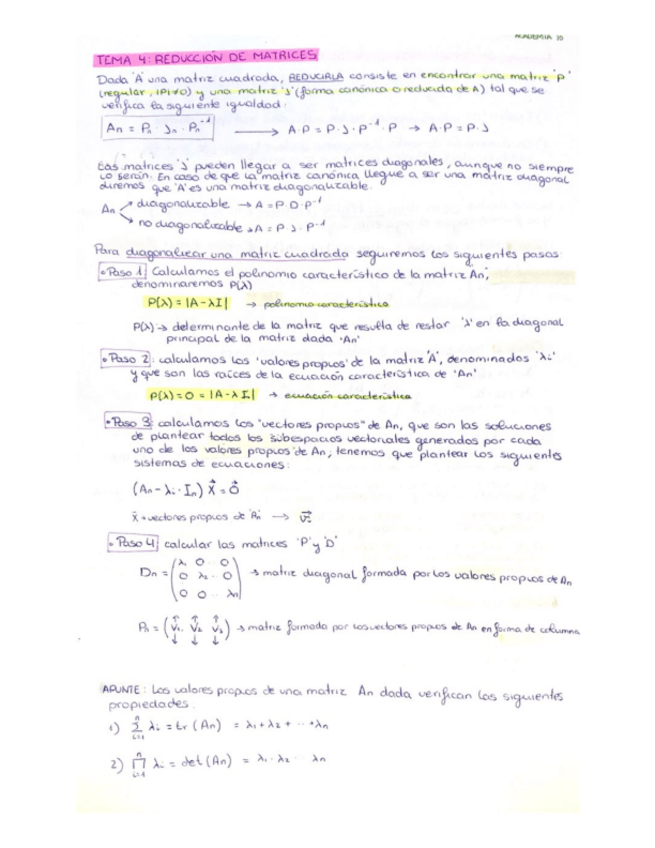 ACADEMIA 10
TEMA 4: REDUCCIÓN DE MATRICES
Dada 'A' una matriz cuadrada, REDUCIRLA consiste en encontrar una matriz 'P'
(regular, |P|≠0) y una matriz 'J' (forma canónica o reducida de A) tal que se
verifica la siguiente igualdad:
An = Pn · Jn · Pn⁻¹ → A·P = P·J·P⁻¹·P → A·P = P·J
Las matrices 'J' pueden llegar a ser matrices diagonales, aunque no siempre
lo serán. En caso de que la matriz canónica llegue a ser una matriz diagonal
diremos que 'A' es una matriz diagonalizable.
An diagonalizable → A = P·D·P⁻¹
no diagonalizable → A = P·J·P⁻¹
Para diagonalizar una matriz cuadrada seguiremos los siguientes pasos
• Paso 1 Calculamos el polinomio característico de la matriz An;
denominaremos P(λ)
P(λ) = |A - λI| → polinomio característico
P(λ) → determinante de la matriz que resulta de restar 'λ' en la diagonal
principal de la matriz dada 'An'
• Paso 2: calculamos los 'valores propios' de la matriz 'A', denominados 'λi'
y que son las raíces de la ecuación característica de 'An'
P(λ) = 0 = |A - λI| → ecuación característica
• Paso 3 calculamos los "vectores propios" de An, que son las soluciones
de plantear todos los subespacios vectoriales generados por cada
uno de los valores propios de An; tenemos que plantear los siguientes
sistemas de ecuaciones:
(An - λi · In) X⃗ = 0⃗
x⃗ → vectores propios de 'An' → v⃗i
• Paso 4 calcular las matrices 'P' y 'D'
Dn = (λ1 0 · 0
0 λ2 · 0
0 0 · · λn) → matriz diagonal formada por los valores propios de An
Pn = (↑ ↑ ↑
V1 V2 V3
↓ ↓ ↓) → matriz formada por los vectores propios de An en forma de columna
APUNTE: Los valores propios de una matriz An dada verifican las siguientes
propiedades.
1) Σ(i=1, n) λi = tr (An) = λ1 + λ2 + ··· + λn
2) Π(i=1, n) λi = det (An) = λ1 · λ2 ··· λn